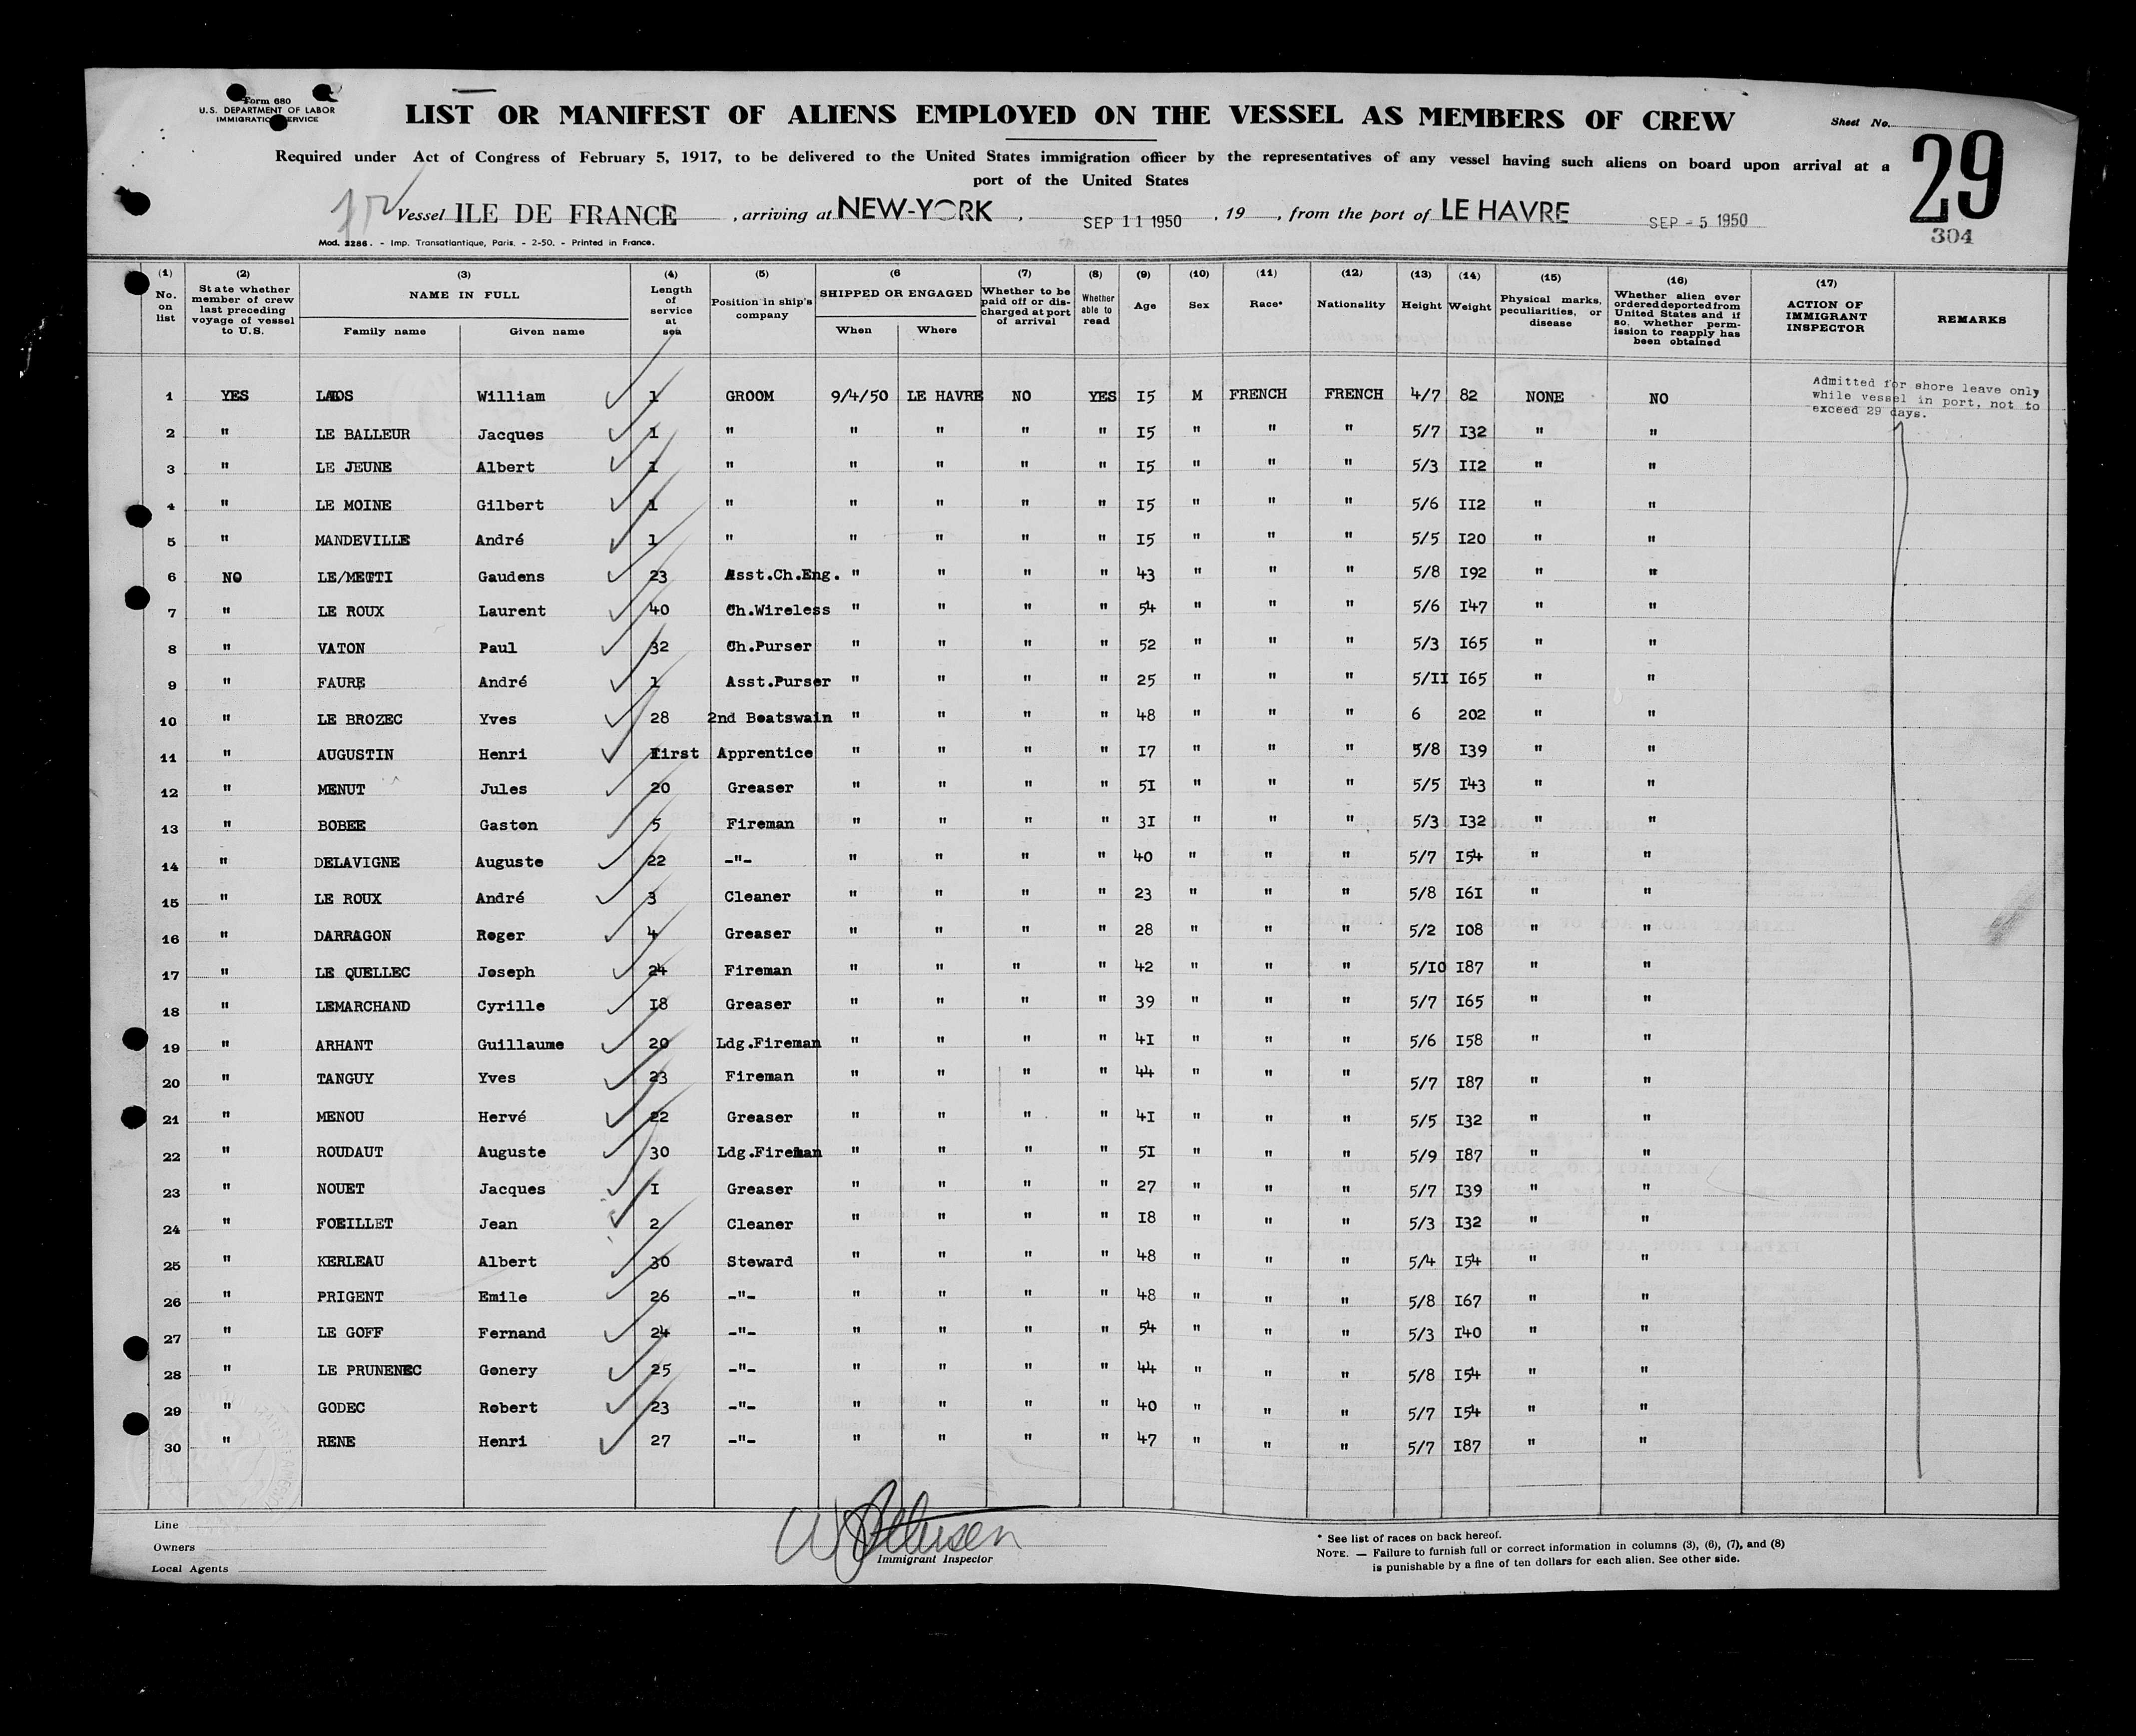 Form 680
U.S. DEPARTMENT OF LABOR
IMMIGRATION SERVICE
LIST OR MANIFEST OF ALIENS EMPLOYED ON THE VESSEL AS MEMBERS OF CREW
Sheet No.
29
304
Required under Act of Congress of February 5, 1917, to be delivered to the United States immigration officer by the representatives of any vessel having such aliens on board upon arrival at a
port of the United States
Vessel ILE DE FRANCE, arriving at NEW-YORK, SEP 11 1950, 19, from the port of LE HAVRE SEP - 5 1950
Mod. 2286. - Imp. Transatlantique, Paris. - 2-50. - Printed in France.
(1) No. on list
(2) State whether member of crew last preceding voyage of vessel to U.S.
(3) NAME IN FULL Family name Given name
(4) Length of service at sea
(5) Position in ship's company
(6 SHIPPED OR ENGAGED When Where
(7) Whether to be paid off or discharged at port of arrival
(8) Whether able to read
(9) Age
(10) Sex
(11) Race*
(12) Nationality
(13) Height
(14) Weight
(15) Physical marks, peculiarities, or disease
(16) Whether alien ever ordered deported from United States and if so, whether permission to reapply has been obtained
(17) ACTION OF IMMIGRANT INSPECTOR
REMARKS
1 YES William 1 GROOM 9/4/50 LE HAVRE NO YES 15 M FRENCH FRENCH 4/7 82 NONE NO
Admitted for shore leave only
while vessel in port, not to
exceed 29 days.
2 " LE BALLEUR Jacques 1 " " " " " 15 " " " 5/7 132 " "
3 " LE JEUNE Albert 1 " " " " " 15 " " " 5/3 112 " "
4 " LE MOINE Gilbert 1 " " " " " 15 " " " 5/6 112 " "
5 " MANDEVILLE André 1 " " " " " 15 " " " 5/5 120 " "
6 NO Gaudens 23 Asst.Ch.Eng. " " " " 43 " " " 5/8 192 " "
7 " LE ROUX Laurent 40 Ch.Wireless " " " " 54 " " " 5/6 147 " "
8 " VATON Paul 32 Ch.Purser " " " " 52 " " " 5/3 165 " "
9 " FAURE André 1 Asst.Purser " " " " 25 " " " 5/11 165 " "
10 " LE BROZEC Yves 28 2nd Boatswain " " " " 48 " " " 6 202 " "
11 " AUGUSTIN Henri First Apprentice " " " " 17 " " " 5/8 139 " "
12 " MENUT Jules 20 Greaser " " " " 51 " " " 5/5 143 " "
13 " BOBEE Gaston 5 Fireman " " " " 31 " " " 5/3 132 " "
14 " DELAVIGNE Auguste 22 -"- " " " " 40 " " " 5/7 154 " "
15 " LE ROUX André 3 Cleaner " " " " 23 " " " 5/8 161 " "
16 " DARRAGON Roger 4 Greaser " " " " 28 " " " 5/2 108 " "
17 " LE QUELLEC Joseph 24 Fireman " " " " 42 " " " 5/10 187 " "
18 " LEMARCHAND Cyrille 18 Greaser " " " " 39 " " " 5/7 165 " "
19 " ARHANT Guillaume 20 Ldg.Fireman " " " " 41 " " " 5/6 158 " "
20 " TANGUY Yves 23 Fireman " " " " 44 " " " 5/7 187 " "
21 " MENOU Hervé 22 Greaser " " " " 41 " " " 5/5 132 " "
22 " ROUDAUT Auguste 30 Ldg.Fireman " " " " 51 " " " 5/9 187 " "
23 " NOUET Jacques 1 Greaser " " " " 27 " " " 5/7 139 " "
24 " FOEILLET Jean 2 Cleaner " " " " 18 " " " 5/3 132 " "
25 " KERLEAU Albert 30 Steward " " " " 48 " " " 5/4 154 " "
26 " PRIGENT Emile 26 -"- " " " " 48 " " " 5/8 167 " "
27 " LE GOFF Fernand 24 -"- " " " " 54 " " " 5/3 140 " "
28 " LE PRUNENEC Gonery 25 -"- " " " " 44 " " " 5/8 154 " "
29 " GODEC Robert 23 -"- " " " " 40 " " " 5/7 154 " "
30 " RENE Henri 27 -"- " " " " 47 " " " 5/7 187 " "
Line
Owners
Local Agents
Immigrant Inspector
* See list of races on back hereof.
NOTE. — Failure to furnish full or correct information in columns (3), (6), (7), and (8)
is punishable by a fine of ten dollars for each alien. See other side.